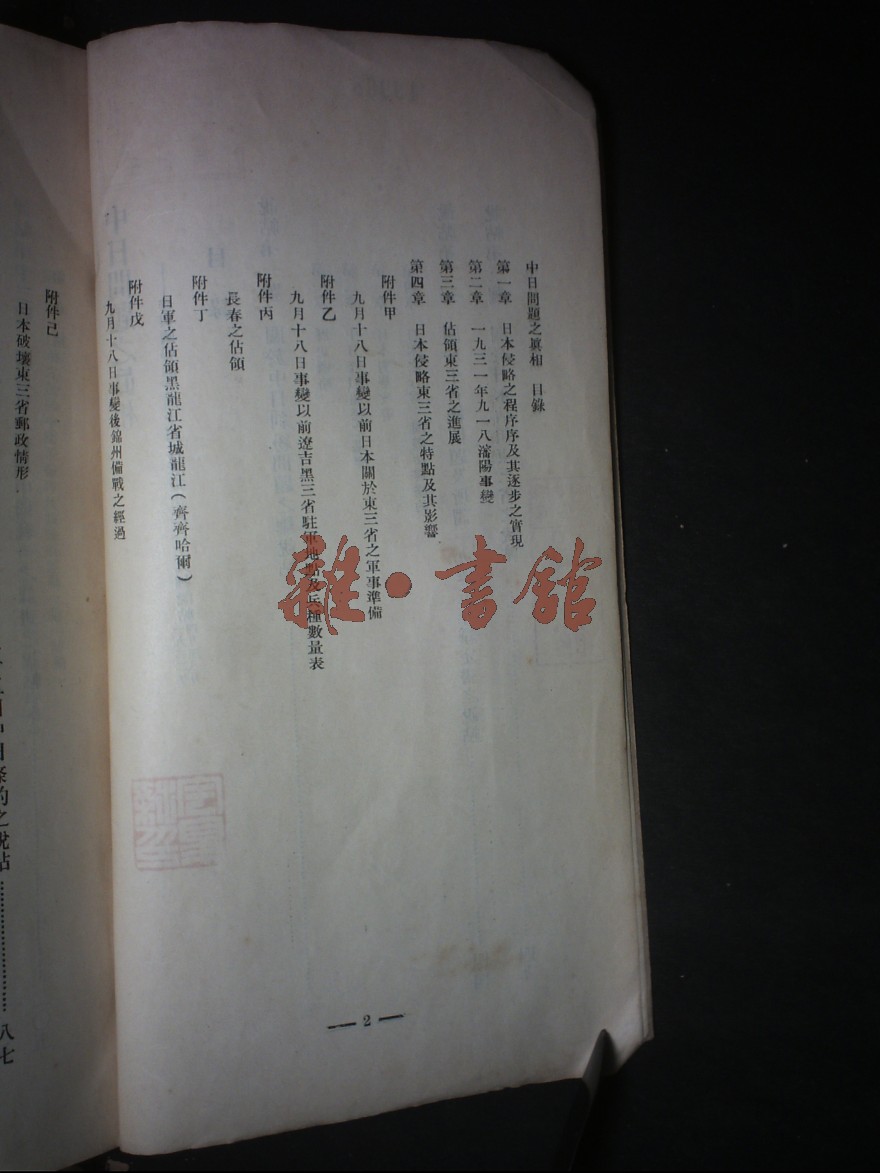 中日問題之眞相　目錄
第一章　日本侵略之程序及其逐步之實現
第二章　一九三一年九一八瀋陽事變
第三章　佔領東三省之進展
第四章　日本侵略東三省之特點及其影響
附件甲
九月十八日事變以前日本關於東三省之軍事準備
附件乙
九月十八日事變以前遼吉黑三省駐軍地點及兵種數量表
附件丙
長春之佔領
附件丁
日軍之佔領黑龍江省城龍江(齊齊哈爾)
附件戊
九月十八日事變後錦州備戰之經過
附件己
日本破壞東三省郵政情形
條約之說帖……八七
—2—
雜·書館